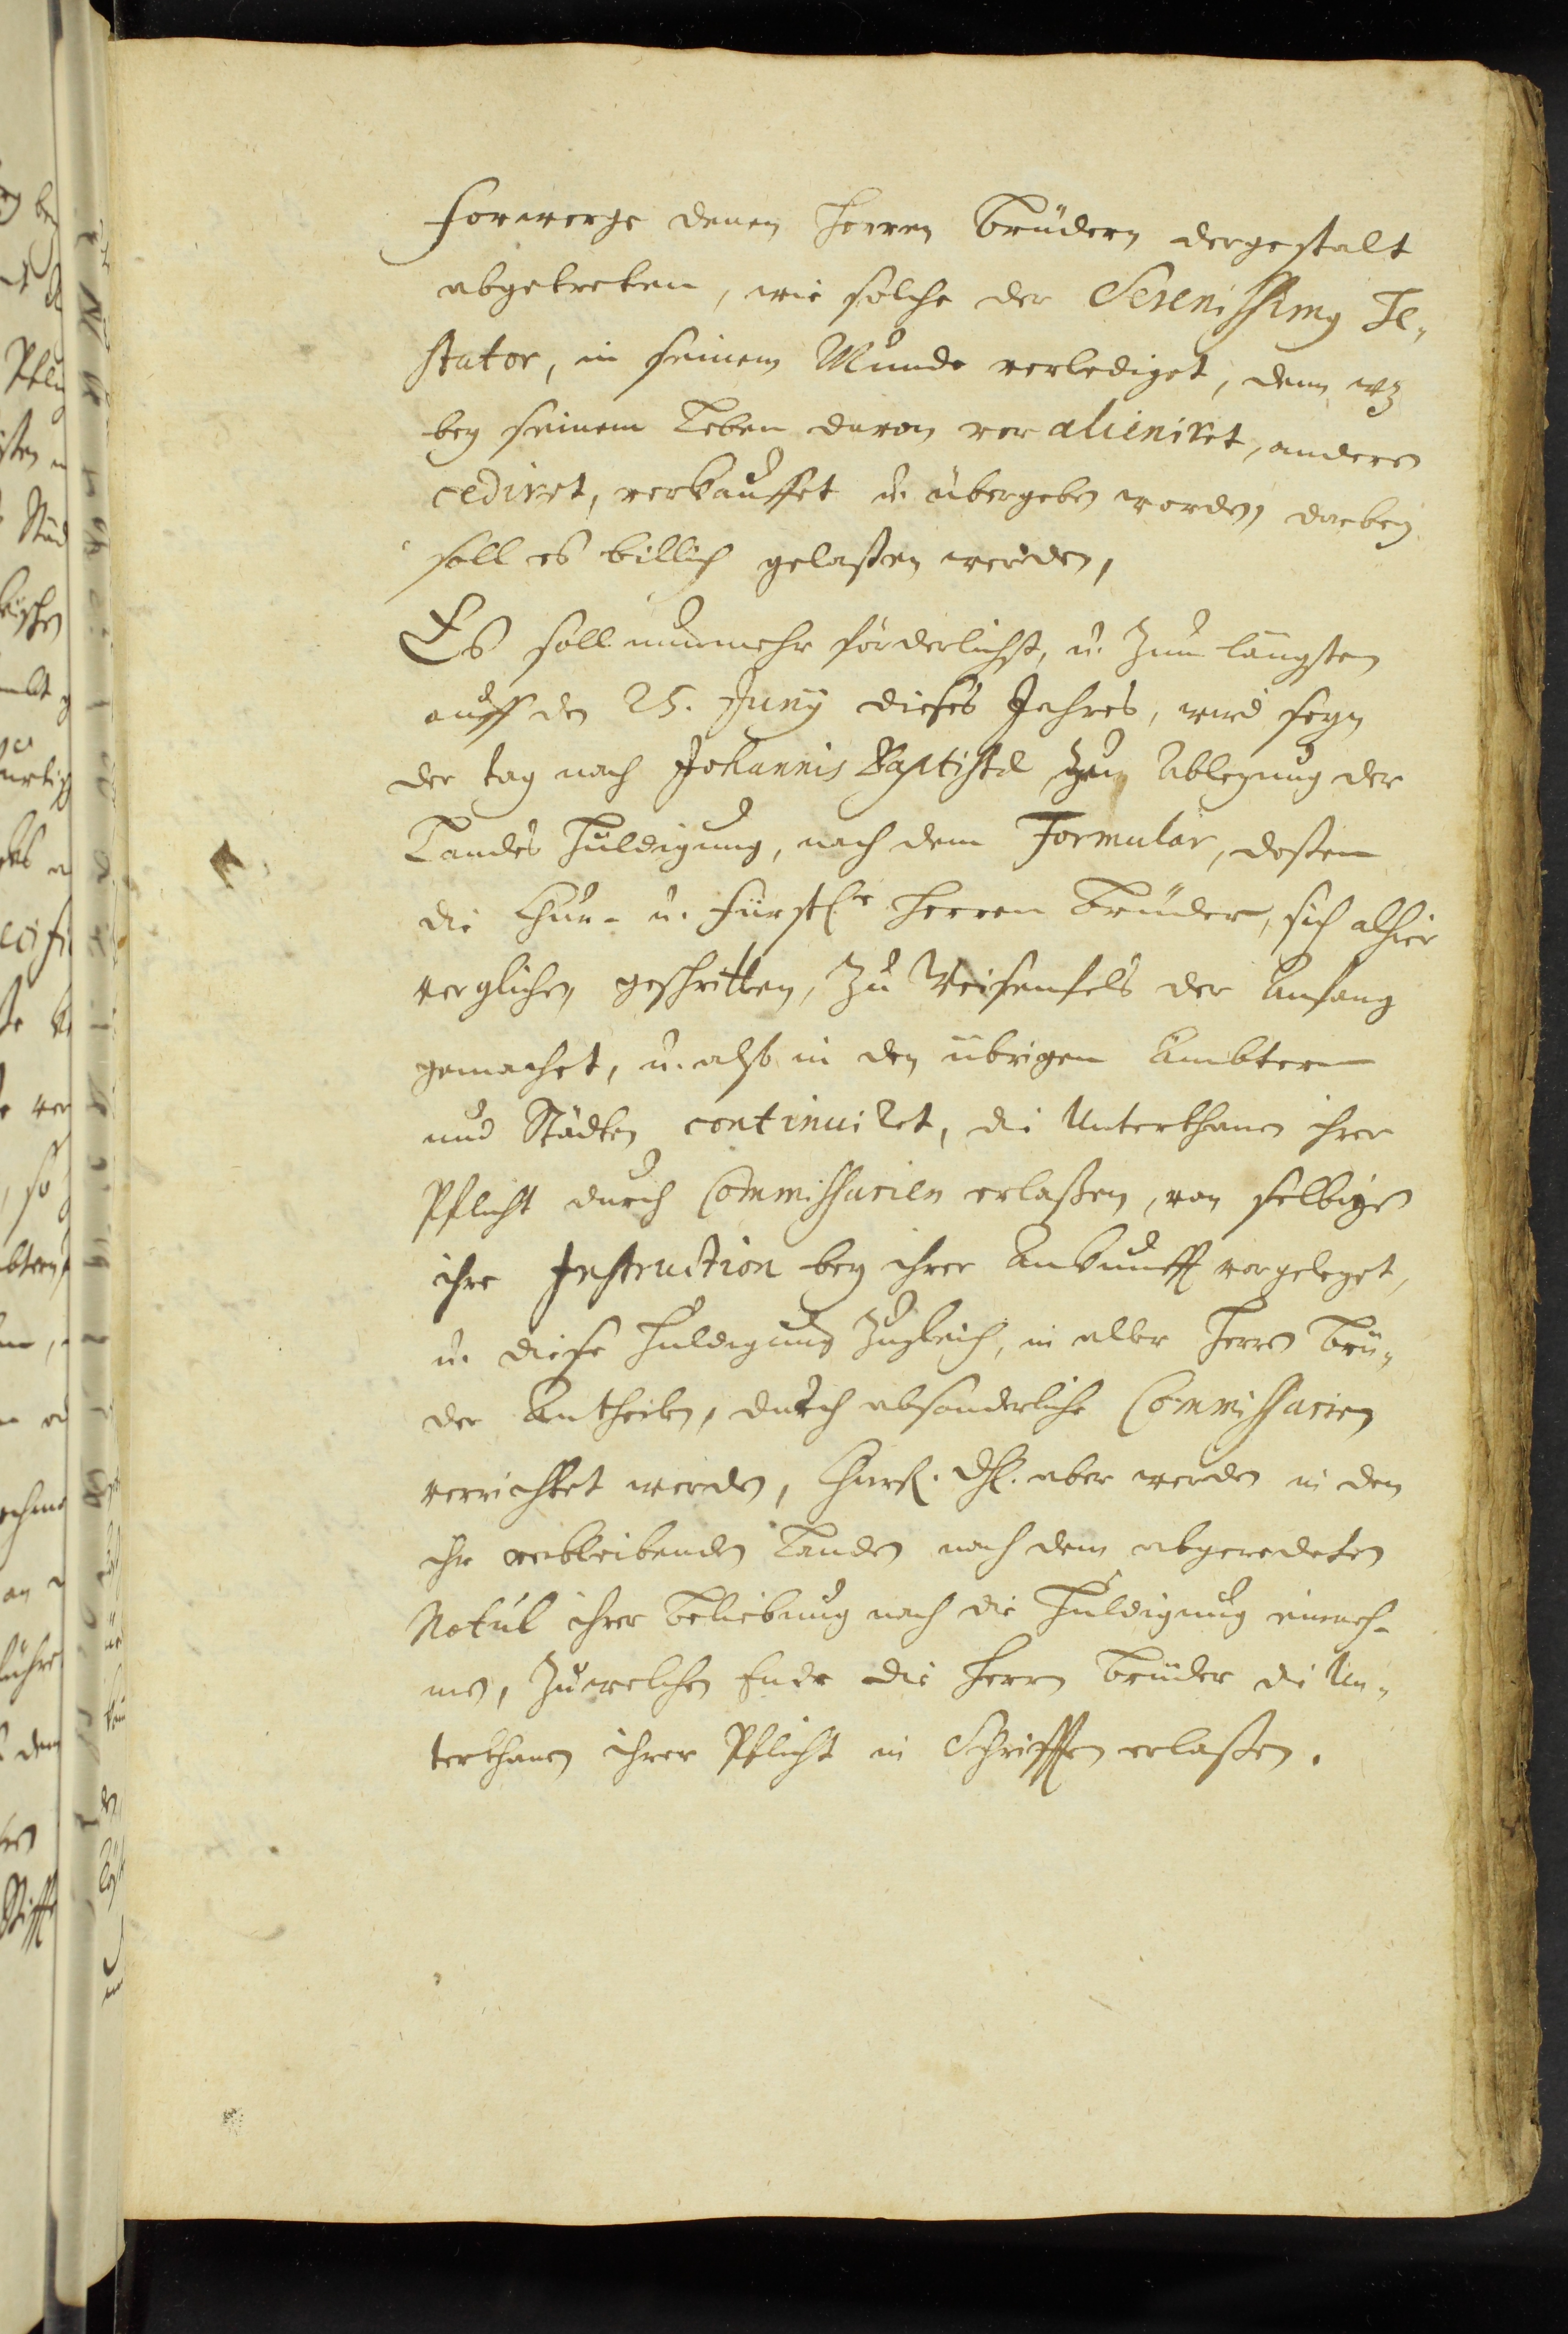 Forwerge denen Herren Brüdern dergestalt
abgetreten, wie solche der Serenissimg Te„
stator, in seinem Munde verlediget, denn wz
bey seinem Leben davon ver alieniret, andern
cediret, verkauffet u. übergeben worden, darbey
soll es billich gelaßen werden,
Es soll nunmehr förderlichst, u. zum längsten
auff den 25. Junij dieses Jahres, wird seyn
der tag nach Johannis Baptistæ zu Ablegung der
Landes Huldigung, nach dem Formular, deßen
die Chur- u. Fürstl.e Herren Brüder, sich alhier
verglichen, geschritten, zu Weisenfels der Anfang
gemachet, u. also in den übrigen Ämbtern
und Städten continuiret, die Unterthanen ihrer
Pflicht durch Commissarien erlaßen, von selbigen
ihre Instruction bey ihrer Ankunfft vorgeleget,
u. diese Huldigung zugleich, in aller Herren Brü„
der Antheilen, durch absonderliche Commissarien
verrichtet werden, Churfl. Dhl. aber werden in den
ihr verbleibenden Landen nach dem abgeredeten
Notul ihrer Beliebung nach die Huldigung einneh-
men, zu welchen Ende die Herren Brüder die Un„
terthanen ihrer Pflicht in Schrifften erlaßen.